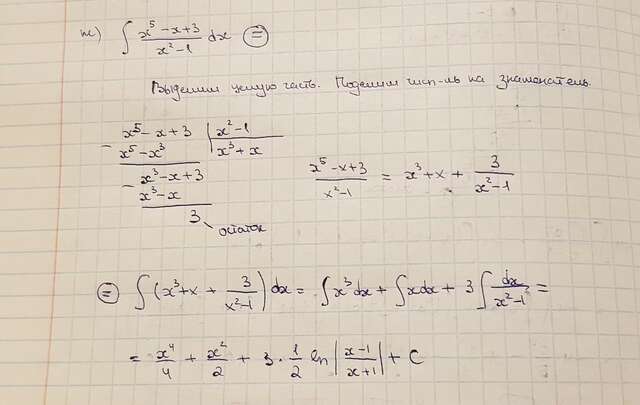 ж) ∫ (x⁵ - x + 3)/(x² - 1) dx ⊜
Выделим целую часть. Поделим числ-ль на знаменатель.
x⁵ - x + 3 | x² - 1
- x⁵ - x³ | x³ + x
x³ - x + 3
- x³ - x
3 остаток
(x⁵ - x + 3)/(x² - 1) = x³ + x + 3/(x² - 1)
⊜ ∫ (x³ + x + 3/(x² - 1)) dx = ∫ x³ dx + ∫ x dx + 3 ∫ dx/(x² - 1²) =
= x⁴/4 + x²/2 + 3 · 1/2 ln |(x - 1)/(x + 1)| + C